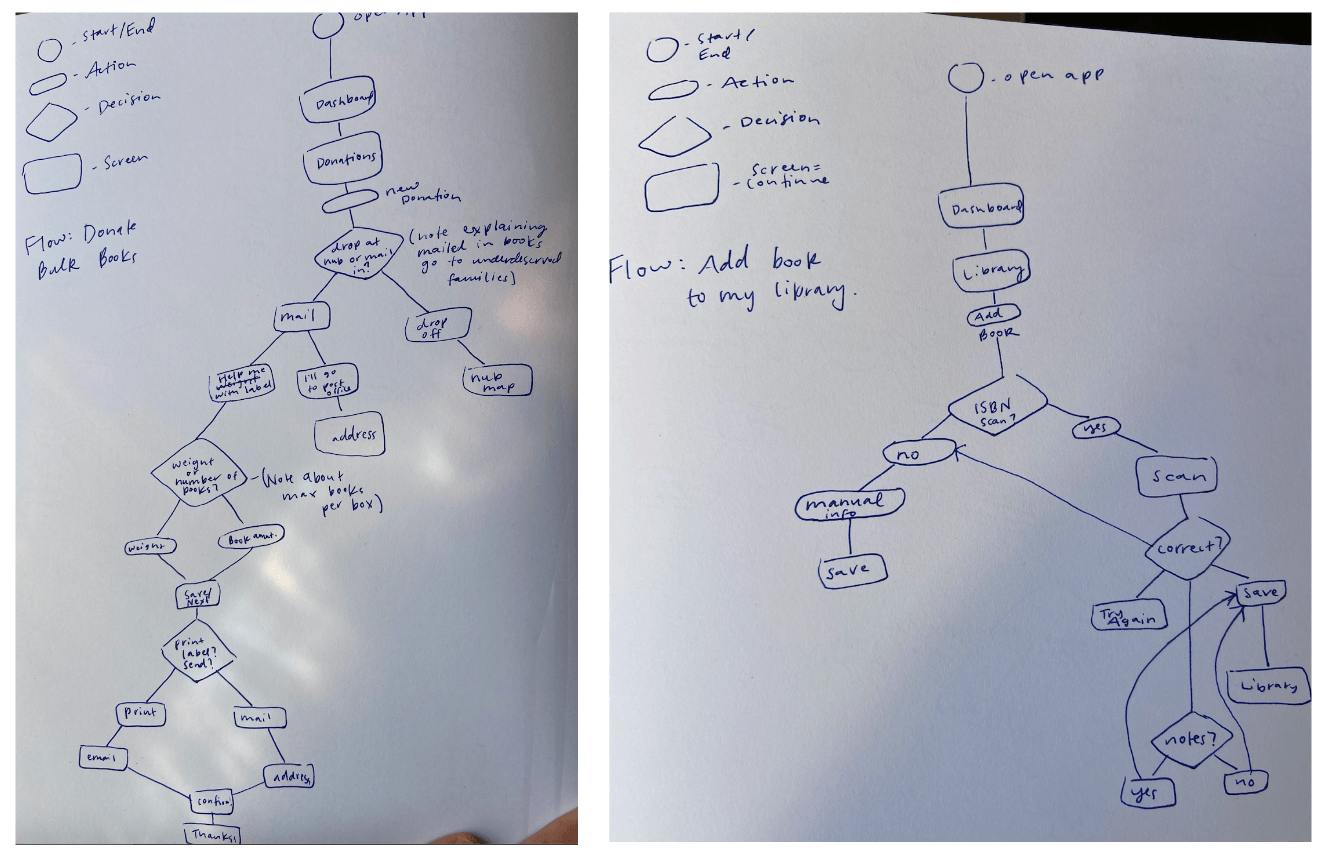 - Start/End
- Action
- Decision
- Screen
Flow: Donate
Bulk Books
open app
Dashboard
Donations
new
Donation
drop at
hub or mail
in?
(note explaining
mailed in books
go to underdeserved
families)
mail
drop
off
hub
map
Help me
with label
I'll go
to post
office
address
weight
or
number of
books?
- (Note about
max books
per box)
weight
Book amnt.
Save/
Next
print
label?
send?
print
mail
email
address
confirm
Thanks!
- Start/
End
- Action
- Decision
Screen=
- Continue
Flow: Add book
to my library.
- open app
Dashboard
Library
Add
BOOK
ISBN
scan?
no
yes
manual
info
save
scan
correct?
Try
Again
save
Library
notes?
yes
no